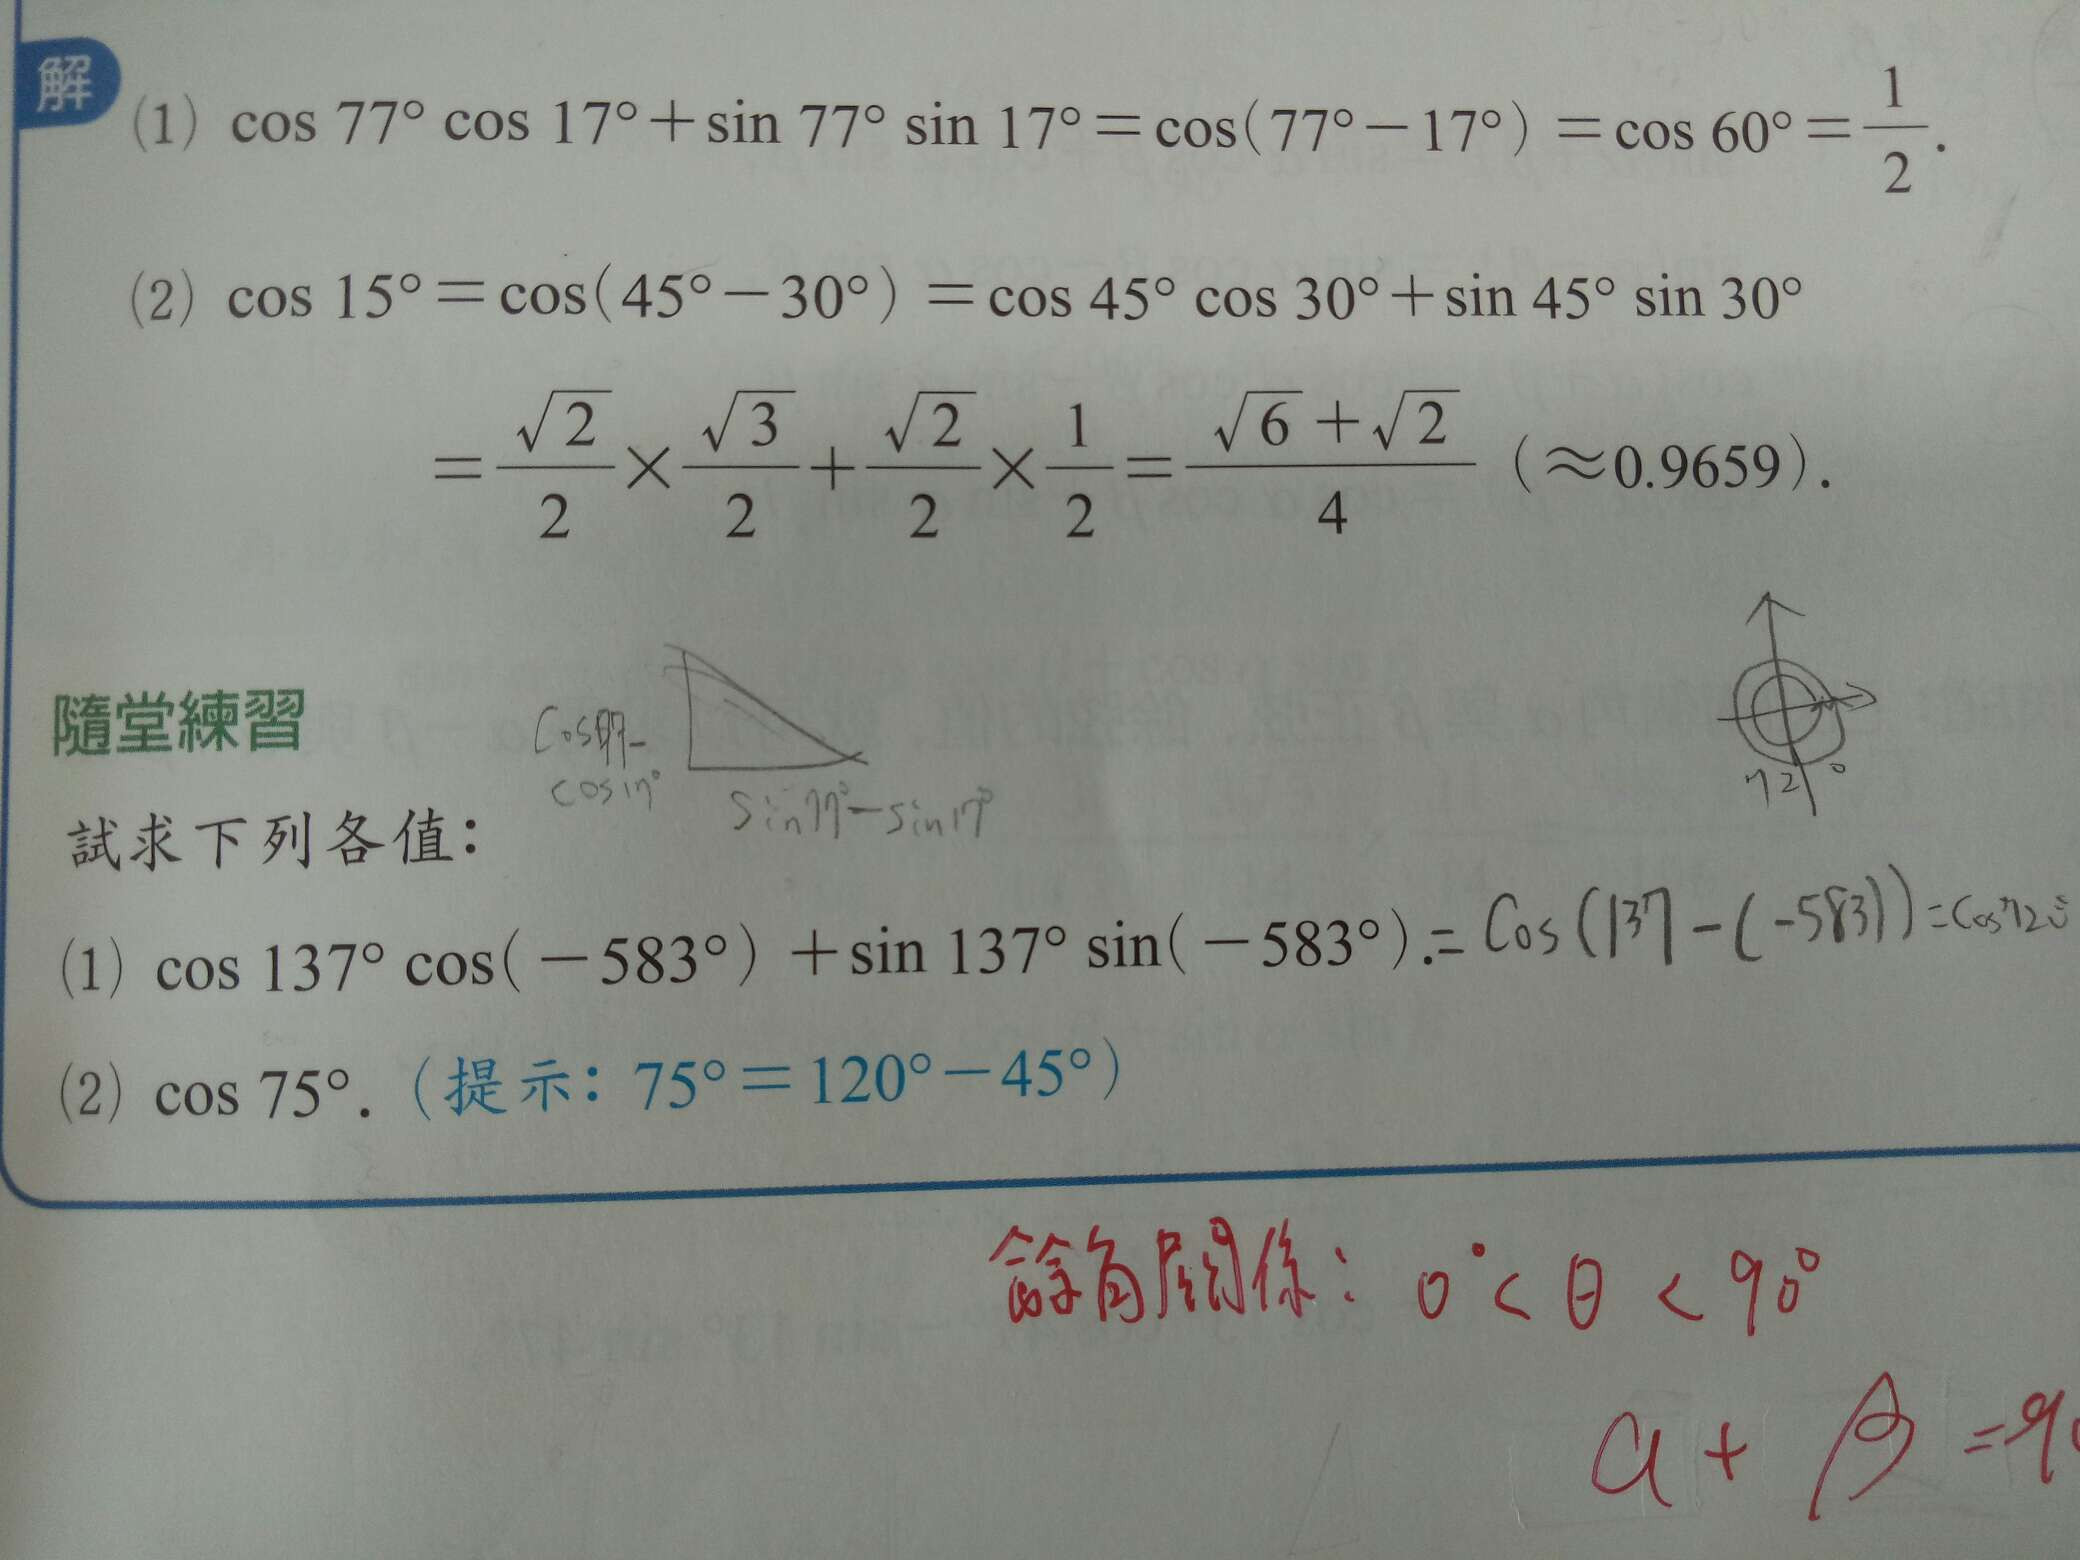 解
(1) cos 77° cos 17°+sin 77° sin 17°=cos(77°−17°)=cos 60°=1/2.
(2) cos 15°=cos(45°−30°)=cos 45° cos 30°+sin 45° sin 30°
=√2/2×√3/2+√2/2×1/2=(√6+√2)/4 (≈0.9659).
隨堂練習
cos17°
sin77°−sin17°
72 °
試求下列各值：
(1) cos 137° cos(−583°)+sin 137° sin(−583°).= Cos(137−(−583))=Cos720
(2) cos 75°. (提示：75°=120°−45°)
餘角關係：0°<θ<90°
α+β=90